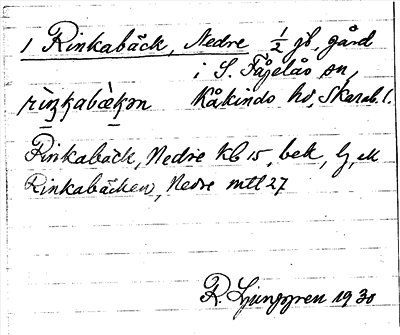 1 Rinkabäck, Nedre 1/2 gb, gård
i S. Fågelås sn,
rìŋkabæ̀kən Kåkinds hd, Skarab. l.
Rinkabäck, Nedre Kb 15, bek, lj, ek
Rinkabäcken, Nedre mtl 27
R. Ljunggren 1930